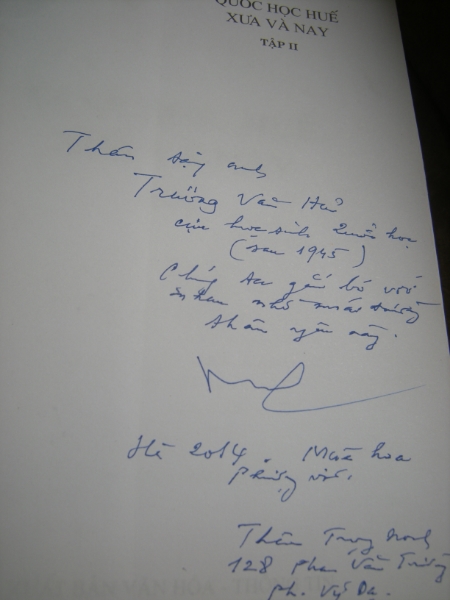 QUỐC HỌC HUẾ
XƯA VÀ NAY
TẬP II
Thân tặng anh
Trương Văn Hử
cựu học sinh Quốc học
(sau 1945)
Chúng ta gắn bó với
nhau nhờ mái trường
thân yêu này.
Hè 2014. Mùa hoa
phượng vĩ.
Thân Trọng Ninh
128 Phan Văn Trường
Ph. Vỹ Dạ.
VĂN HÓA